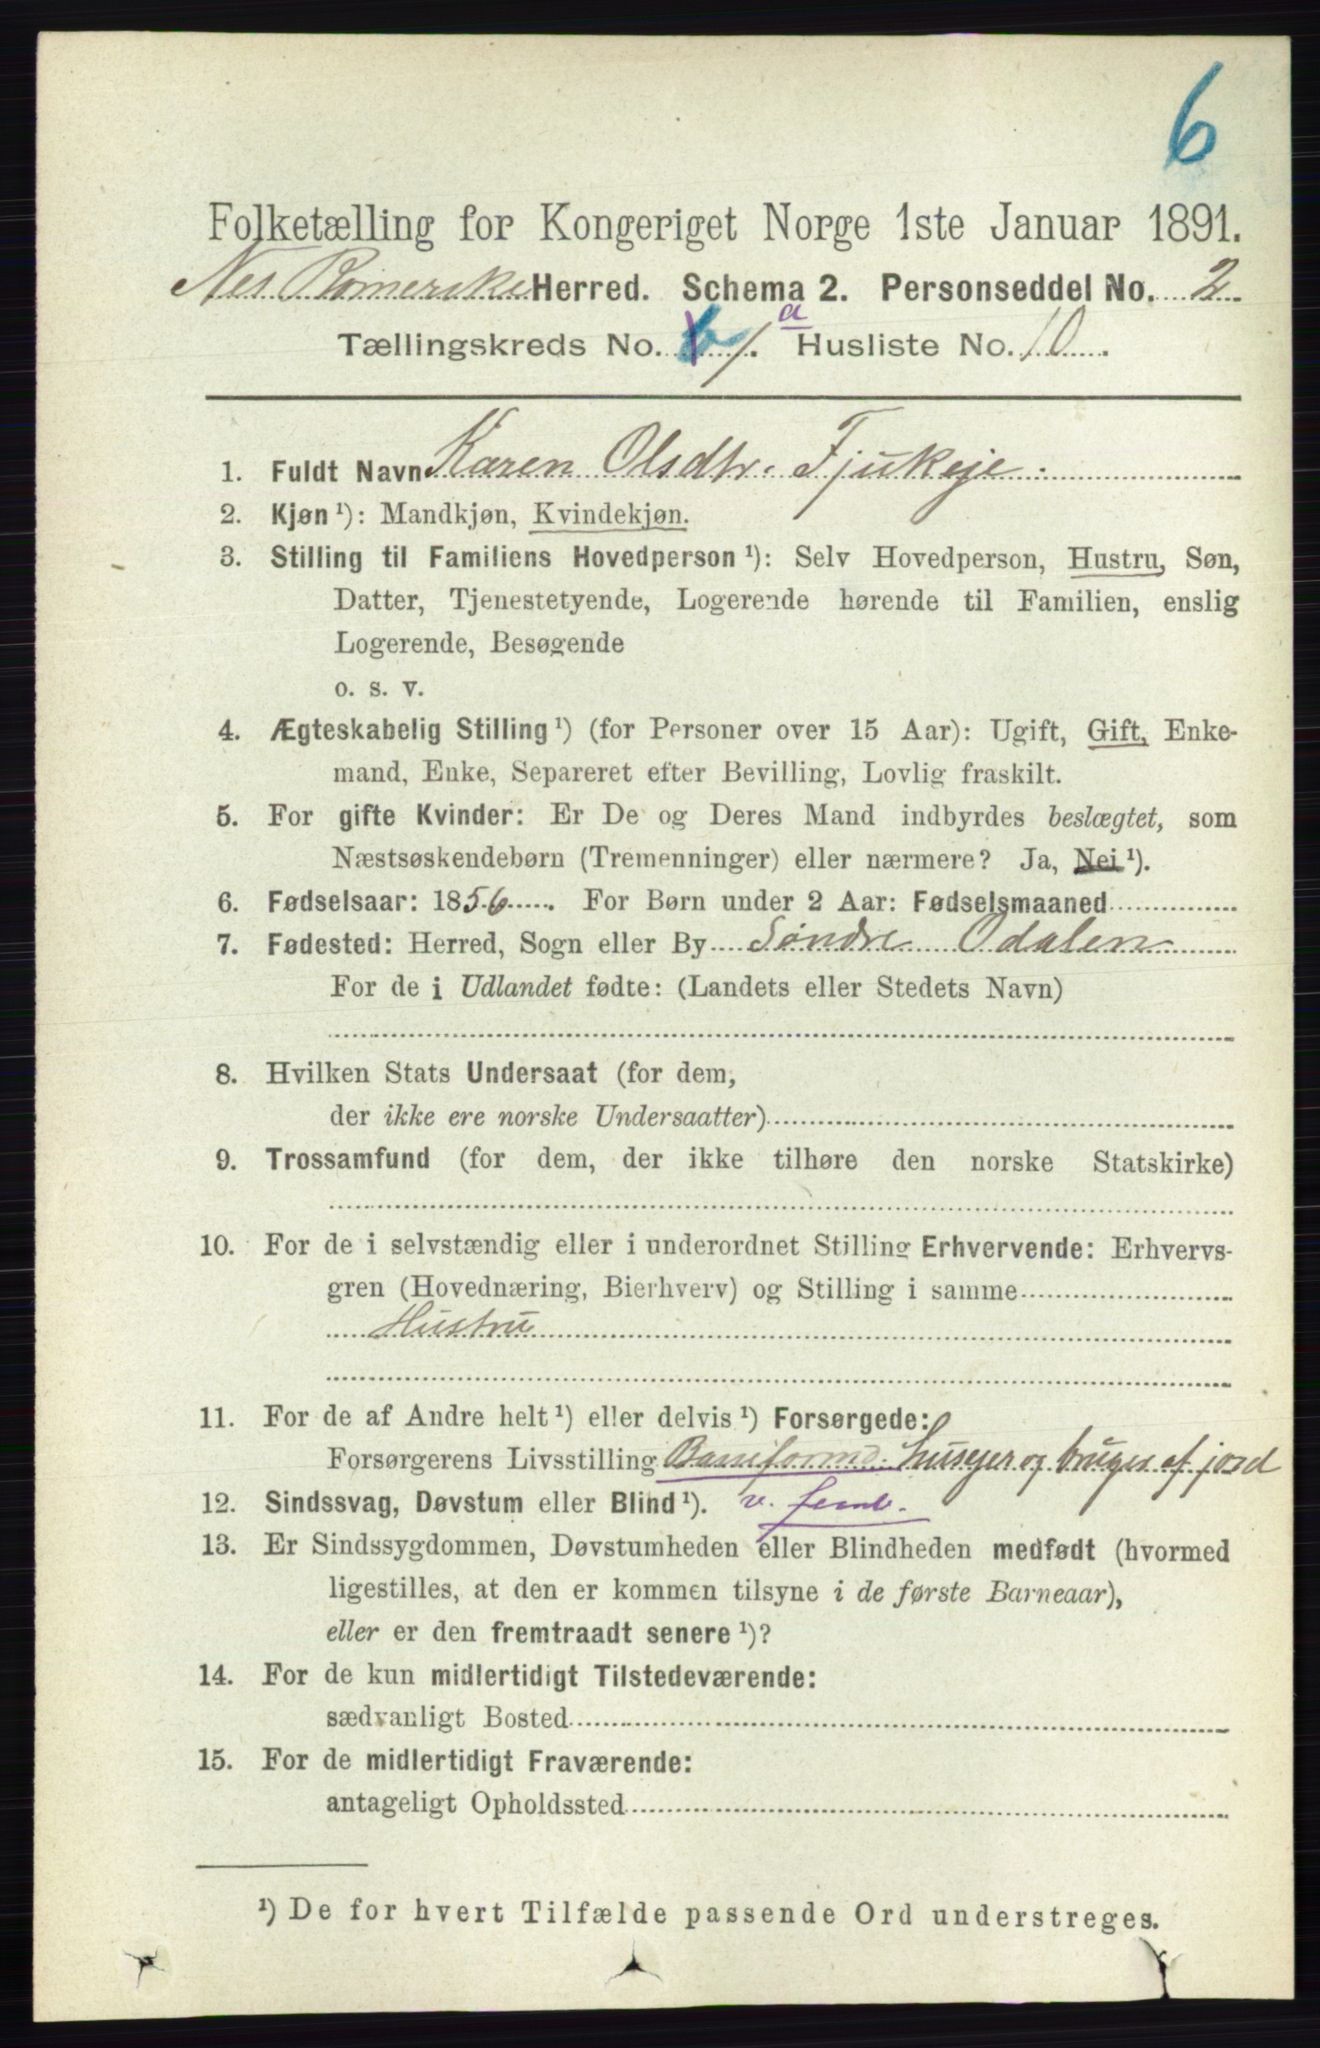 6
Folketælling for Kongeriget Norge 1ste Januar 1891.
Nes Romerike Herred. Schema 2. Personseddel No. 2
Tællingskreds No. 6 1. a Husliste No. 10
1. Fuldt Navn Karen Olsdtr. Fjukeje.
2. Kjøn ¹): Mandkjøn, Kvindekjøn.
3. Stilling til Familiens Hovedperson ¹): Selv Hovedperson, Hustru, Søn,
Datter, Tjenestetyende, Logerende hørende til Familien, enslig
Logerende, Besøgende
o. s. v.
4. Ægteskabelig Stilling ¹) (for Personer over 15 Aar): Ugift, Gift, Enke-
mand, Enke, Separeret efter Bevilling, Lovlig fraskilt.
5. For gifte Kvinder: Er De og Deres Mand indbyrdes beslægtet, som
Næstsøskendebørn (Tremenninger) eller nærmere? Ja, Nei ¹).
6. Fødselsaar: 1856. For Børn under 2 Aar: Fødselsmaaned
7. Fødested: Herred, Sogn eller By Søndre Odalen
For de i Udlandet fødte: (Landets eller Stedets Navn)
8. Hvilken Stats Undersaat (for dem,
der ikke ere norske Undersaatter)
9. Trossamfund (for dem, der ikke tilhøre den norske Statskirke)
10. For de i selvstændig eller i underordnet Stilling Erhvervende: Erhvervs-
gren (Hovednæring, Bierhverv) og Stilling i samme
Hustru
11. For de af Andre helt ¹) eller delvis ¹) Forsørgede:
Forsørgerens Livsstilling husejer og bruger af jord
12. Sindssvag, Døvstum eller Blind ¹). v.
13. Er Sindssygdommen, Døvstumheden eller Blindheden medfødt (hvormed
ligestilles, at den er kommen tilsyne i de første Barneaar),
eller er den fremtraadt senere ¹)?
14. For de kun midlertidigt Tilstedeværende:
sædvanligt Bosted
15. For de midlertidigt Fraværende:
antageligt Opholdssted
¹) De for hvert Tilfælde passende Ord understreges.